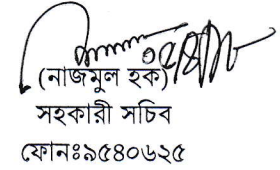 (নাজমুল হক)
সহকারী সচিব
ফোনঃ৯৫৪০৬২৫